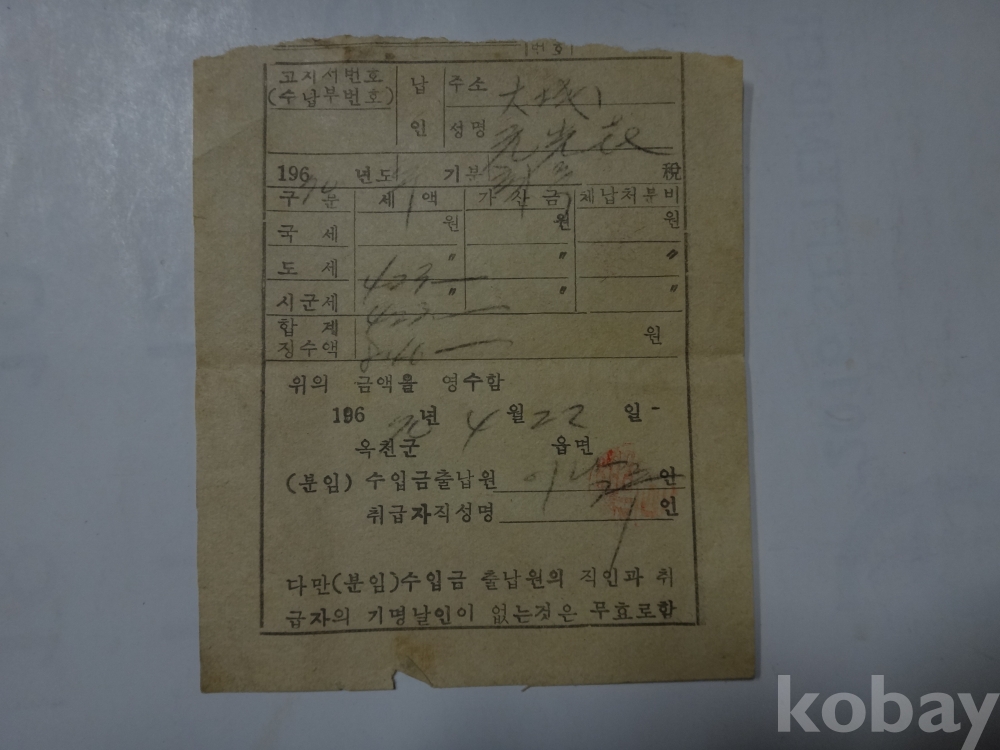 번호
고지서번호 납 주소 大
(수납부번호) 인 성명 元光
196 년도 기분 稅
구분 세액 가산금 체납처분비
국세 원 원 원
도세 〃 〃 〃
423
시군세 〃 〃 〃
423
합계
징수액 원
위의 금액을 영수함
196 70년 4월 22일
옥천군 읍면
(분임) 수입금출납원 인
취급자직성명 인
다만(분임)수입금 출납원의 직인과 취
급자의 기명날인이 없는것은 무효로함
kobay